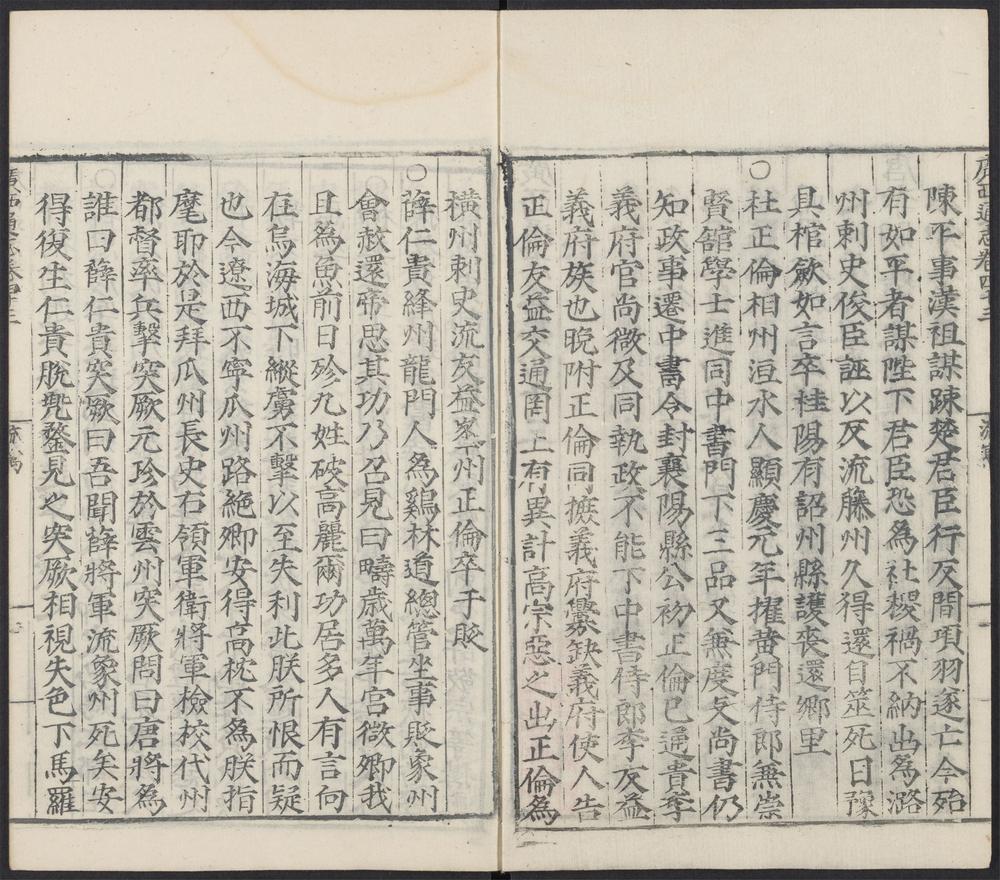 廣西通志卷四十三
流寓
陳平事漢祖謀踈楚君臣行反間項羽遂亡今殆
有如平者謀陛下君臣恐為社稷禍不納出為潞
州刺史俊臣誣以反流藤州久得還自筮死日豫
具棺斂如言卒桂陽有詔州縣護喪還鄉里
○杜正倫相州洹水人顯慶元年擢黃門侍郎兼崇
賢舘學士進同中書門下三品又兼度支尚書仍
知政事遷中書令封襄陽縣公初正倫已通貴李
義府官尚微及同執政不能下中書侍郎李友益
義府族也晚附正倫同摭義府釁缺義府使人告
正倫友益交通罔上有異計高宗惡之出正倫為
橫州刺史流友益峯州正倫卒于貶
○薛仁貴絳州龍門人為鷄林道總管坐事貶象州
會赦還帝思其功乃召見曰疇歲萬年宮微卿我
且為魚前日殄九姓破高麗爾功居多人有言向
在烏海城下縱虜不擊以至失利此朕所恨而疑
也今遼西不寧瓜州路絶卿安得高枕不為朕指
麾耶於是拜瓜州長史右領軍衛將軍檢校代州
都督率兵擊突厥元珍於雲州突厥問曰唐將為
誰曰薛仁貴突厥曰吾聞薛將軍流象州死矣安
得復生仁貴脫兜鍪見之突厥相視失色下馬羅
廣西通志卷四十三
流寓